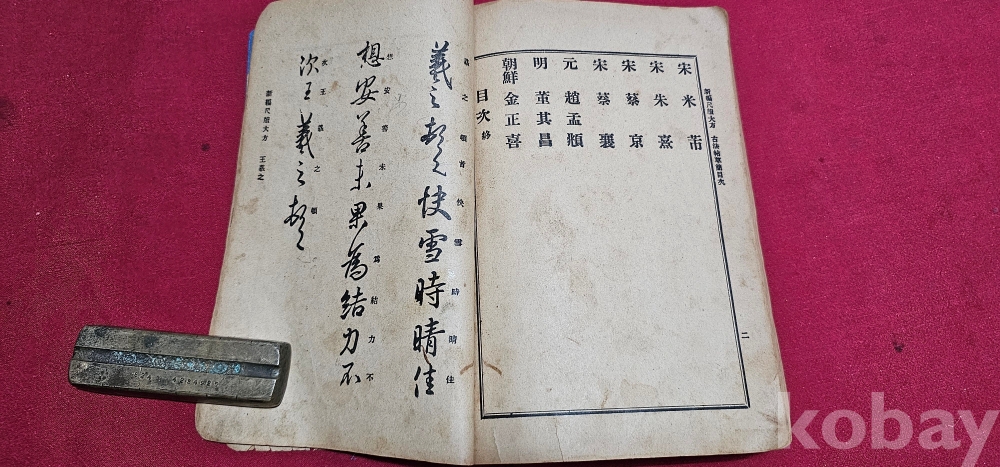 新編尺牘大方
宋 米 芾
宋 朱 熹
宋 蔡 京
宋 蔡 襄
元 趙孟頫
明 董其昌
朝鮮 金正喜
目次 終
二
羲之頓首快雪時晴佳
羲之頓首快雪時晴佳
想安善未果爲結力不
想安善未果為結力不
次王羲之頓
次王羲之頓首
新編尺牘大方 王羲之
kobay